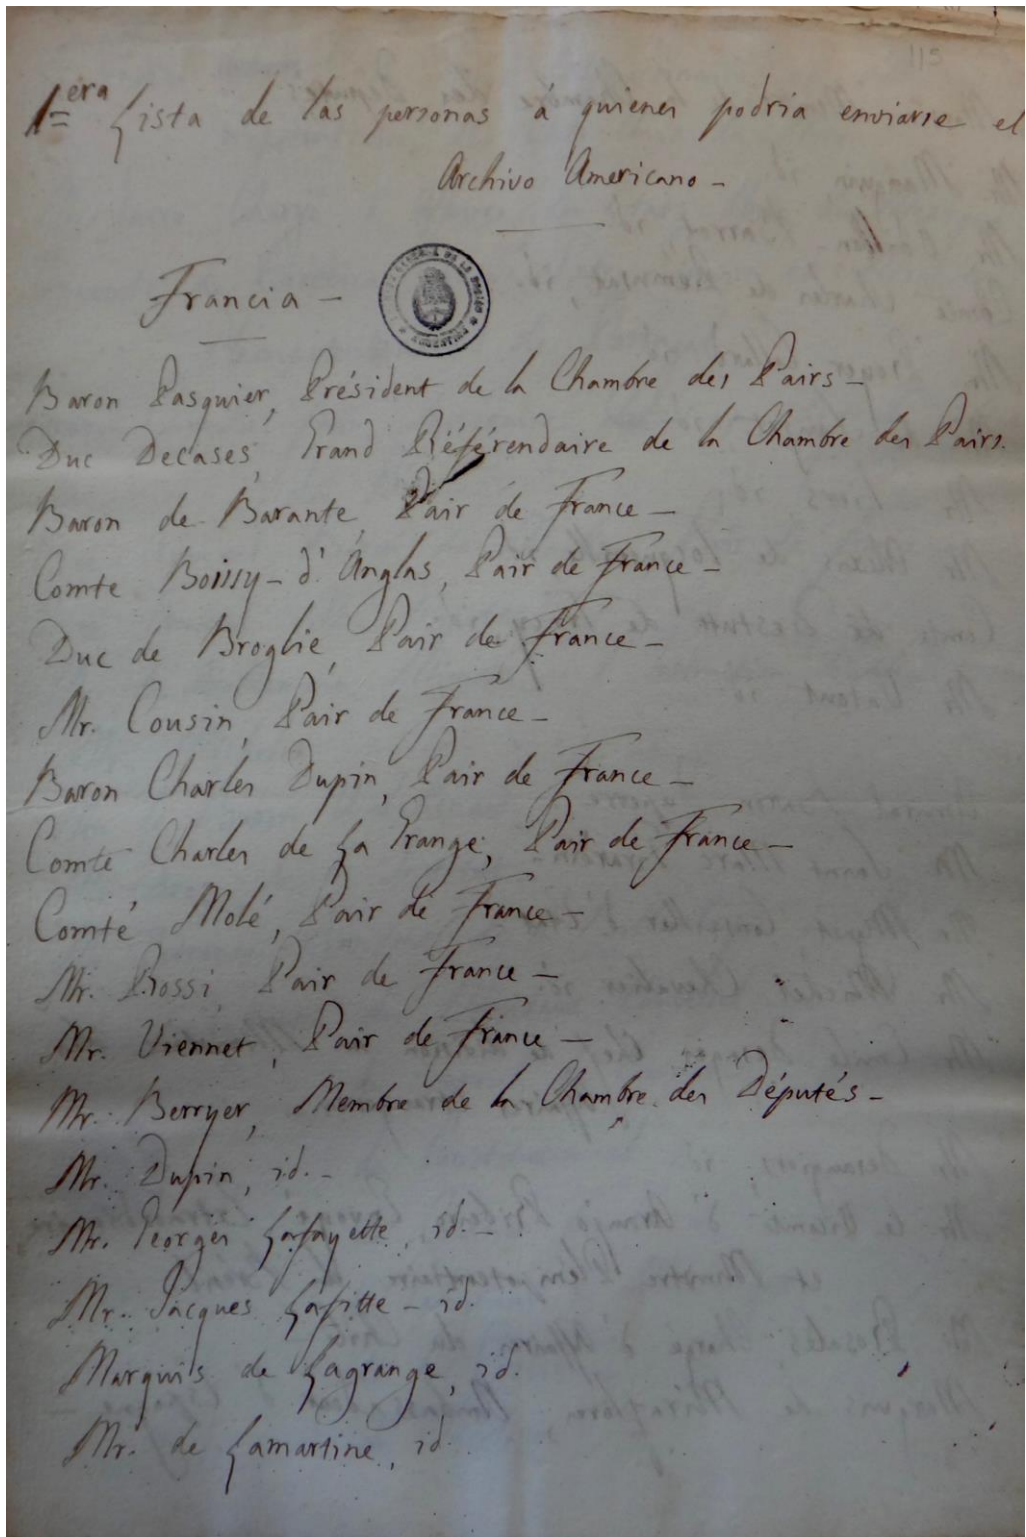 115
1=era Lista de las personas á quienes podria enviarse el
Archivo Americano -
Francia -
ARGENTINA
Baron Pasquier, Président de la Chambre des Pairs -
Duc Decases, Grand Référendaire de la Chambre des Pairs.
Baron de Barante, Pair de France -
Comte Boissy - d'Anglas, Pair de France -
Duc de Broglie, Pair de France -
Mr. Cousin, Pair de France -
Baron Charles Dupin, Pair de France -
Comte Charles de La Grange, Pair de France -
Comté Molé, Pair de France -
Mr. Rossi, Pair de France -
Mr. Viennet, Pair de France -
Mr. Berryer, Membre de la Chambre des Députés -
Mr. Dupin, id. -
Mr. Georges Lafayette, id. -
Mr. Jacques Lafitte - id.
Marquis de Lagrange, id.
Mr. de Lamartine, id.